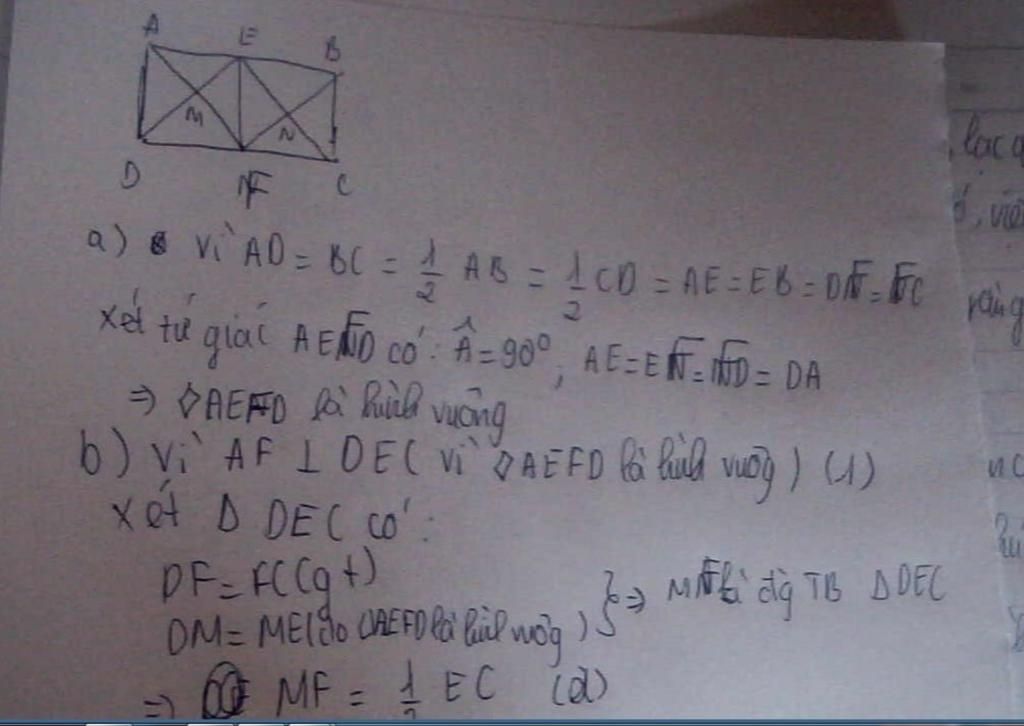 A E B
M N
D F C
a) Vì AD = BC = 1/2 AB = 1/2 CD = AE = EB = DF = FC
Xét tứ giác AEFD có: Â = 90°; AE = EF = FD = DA
=> ◇AEFD là hình vuông
b) Vì AF ⊥ DE ( vì ◇AEFD là hình vuôg ) (1)
Xét Δ DEC có:
DF = FC (gt)
DM = ME (do ◇AEFD là hình vuôg ) } => MF là đg TB Δ DEC
=> MF = 1/2 EC (2)